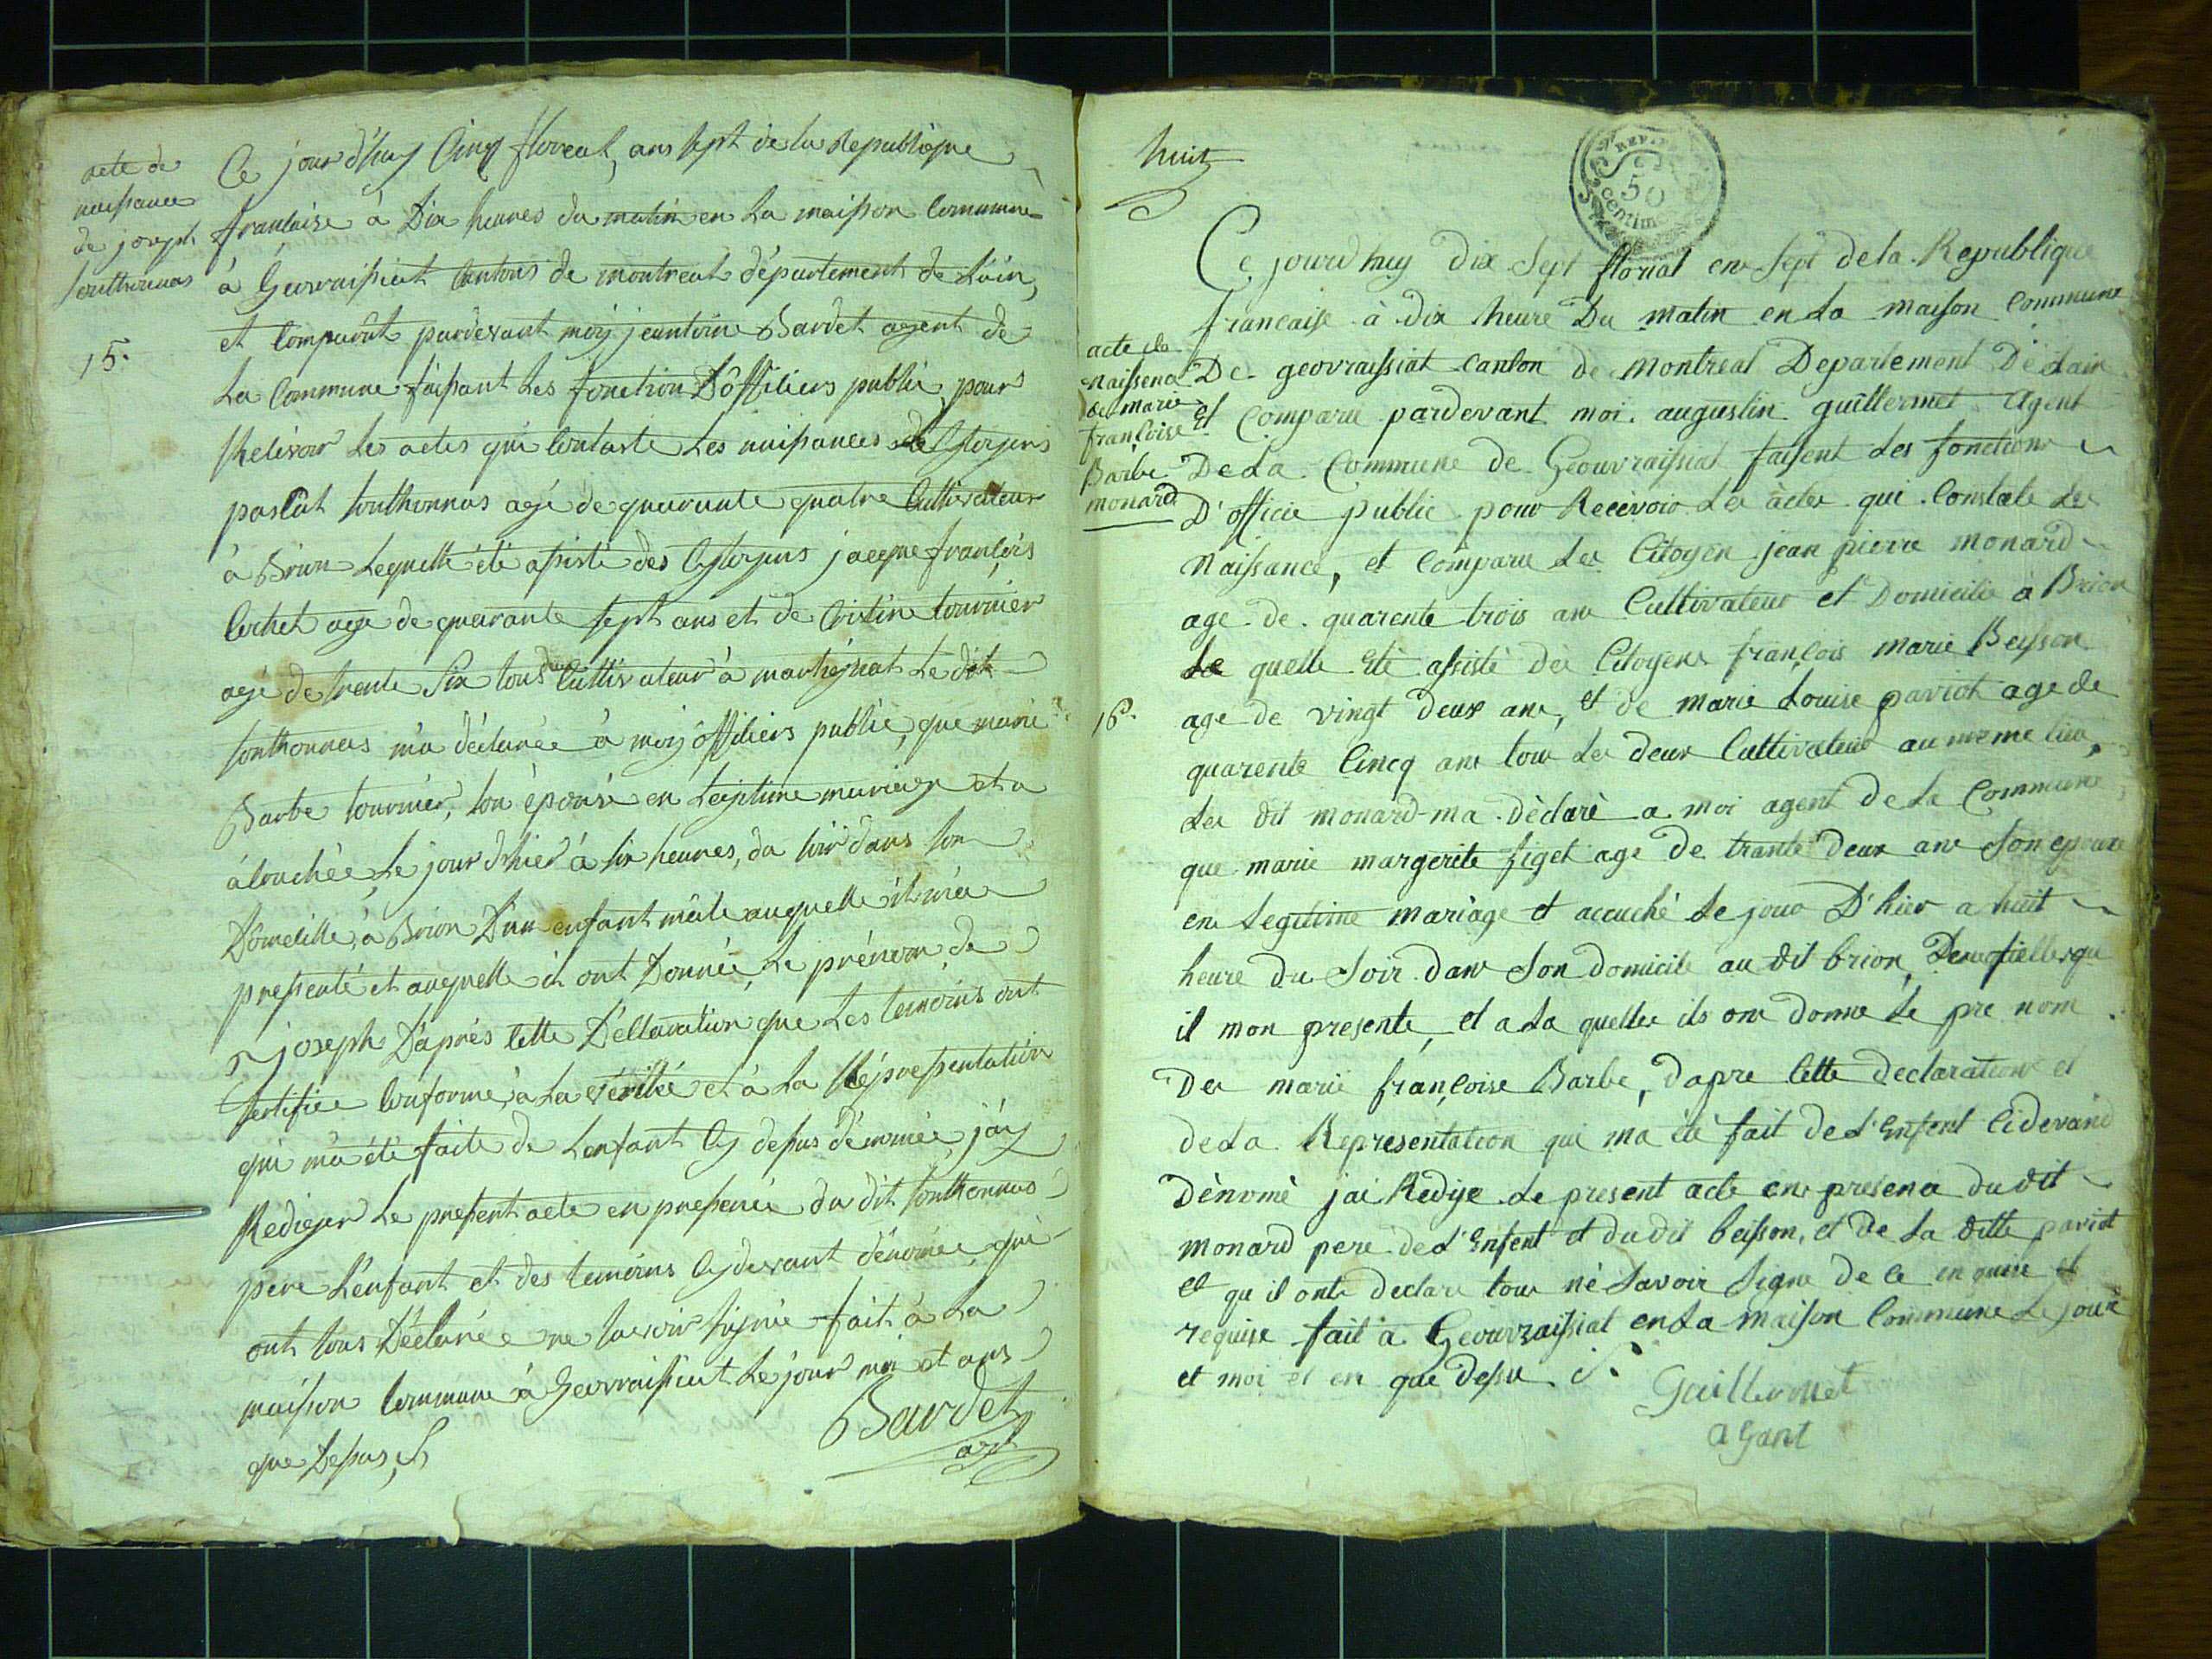 acte de
naissance
de joseph
Southonnas
15.
Ce jour d'huy Cinq floreal, ans sept de la Republique
francaise à Dix heures du matin en La maison Commune
à Geovraissiat Cantons de montreal département de Lain,
et Comparût pardevant moy jeantoine Bardet agent de
La Commune faisant Les fonction D'ôfficiers public pour
Recevoir Les actes qui Contaste Les naissances de Cytoyens
pascât Southonnas agé de quarante quatre Cultivateur
à Brion Lequelle été assisté des Cytoyens jacque françois
Cochet age de quarante sept ans et de Cristin tournier
agé de trente Six tous deux Cultivateur à martignat Le dit
Southonnas m'a déclarée à moy ôfficiers public, que marie
Barbe tournier, son épouse en Legitime mariage et a
acouchée Le jour d'hier à six heures, du soir dans son
Domicille à Brion D'un enfant mâle auquelle il m'a
presenté et auquelle il ont Donnée Le prénom de
joseph D'aprés Cette Déclaration que Les temoins ont
Certifiée Conforme à La vérité et à La Représentation
qui m'a été faite de Lenfant Cy dessus dénomée j'ay
Rediger Le present acte en presence du dit Southonnas
pere L'enfant et des temoins Cydevant dénomée qui
ont tous Déclarée ne savoir signée fait à La
maison Commune à Geovraissiat Le jour moi et ans
que Dessus,
Bardet
agt
huit
REP. FRA
50
centim
Ce jourdhuy dix Sept florial en Sept de la Republique
francaise à dix heure Du matin en La maison Commune
acte de
Naissence
de marie
françoise
Barbe
monard
De geovraissiat canton de Montreal Departement De Lain
et Comparu pardevant moi augustin guillermet Agent
De La Commune de Geouvraissiat faisent Les fonctions
D'officie public pour Recevoir Les àctes qui Constate Les
Naissance, et Comparu Le Citoyen jean pierre monard
age de quarente trois ans Cultivateur et Domicilié à Brion
Le quelle été assisté de Citoyens françois Marie Beysson
16.
age de vingt deux ans, et de marie Louise paviot age de
quarente Cincq ans tous Les deux Cultivateurs au meme Lieu,
Le dit monard ma Dèclaré a moi agent de La Commune
que marie margerite figet age de trante deux ans Son epouse
en Legitime mariage et accuché Le jour D'hier a huit
heure du Soir dans Son domicile au dit brion, Deune fielle qu
il mon presente, et a La quelle ils ont donné Le pre nom
De marie françoise Barbe, dapre Cette declaration et
de La Representation qui ma été fait de L'Enfent Cidevand
Dènomé jai Redige Le present acte en presence du dit
monard pere de L'Enfent et du dit beisson, et de La ditte paviot
et qu il onte declare tous né Savoir Signe de Ce enquire et
requise fait à Geouvraissiat en La maison Commune Le jour
et moi et en que dessu
Guillermet
agant